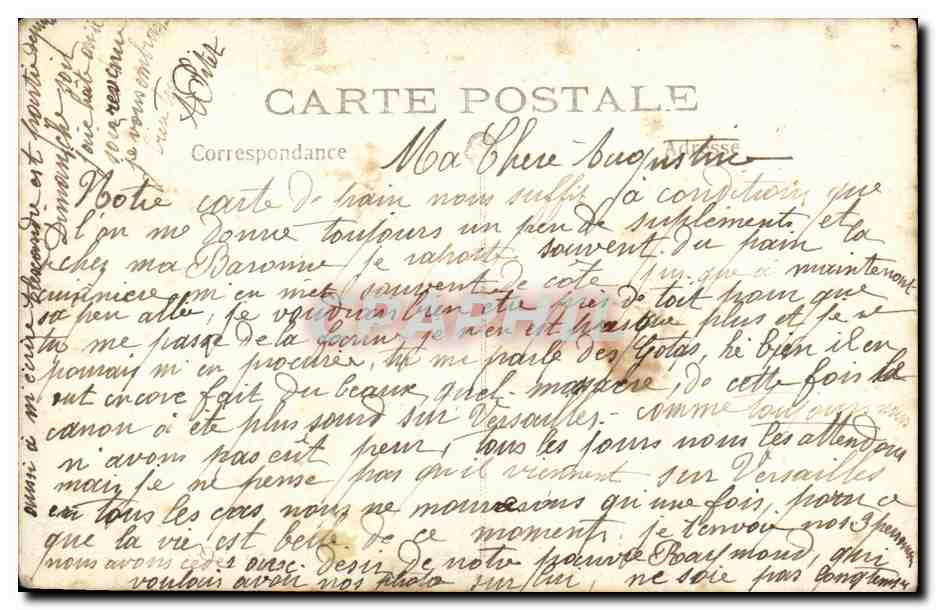 CARTE POSTALE
Correspondance
Adresse
Ma Chere Augustine
Notre carte de pain nous suffit à condition que
l'on me Donne toujours un peu de suplements, et la
chez ma Baronne je raporte souvent du pain la
cuisiniere m'en met souvent de coté, jus que a maintenant
sa peu allé, je voudrais bien etre près de toit pour que
tu me passe de la farine, je n'en est presque plus et je ne
pourais m'en procurée, tu me parle des Gotas, hé bien il en
ont encore fait du beaux, quel massacre, de cette fois le
canon a été plus sourd sur Versailles - comme toujours nous
n'avons pas eut peur, tous les jours nous les attendons
mais je ne pense pas qu'il viennent sur Versailles
en tous les cas nous ne mourrons qu'une fois, pour ce
que la vie est belle de ce moment. je t'envoie nos 3
nous avons cédez au desir de notre pauvre Raymond, qui
voulais avoir nos photo sur lui, ne soie pas longtemps
aussi à m'écrire est partie depuis
Dimanche soir
j'ai hate
revenue
je vous embrasse